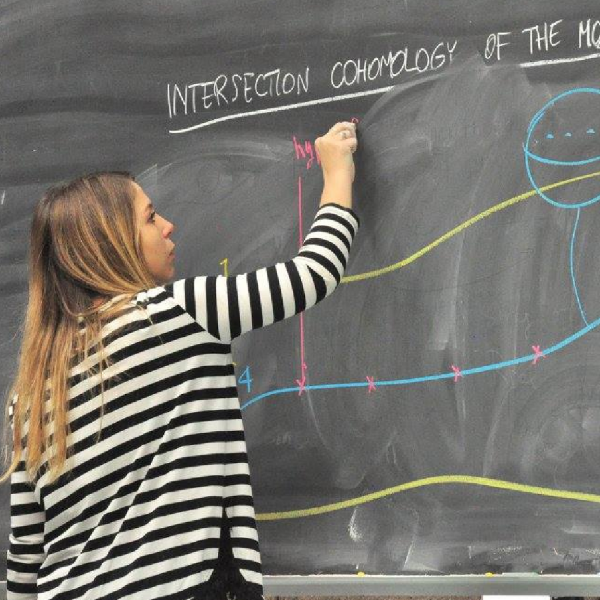 INTERSECTION COHOMOLOGY OF THE MO
hy
1
4